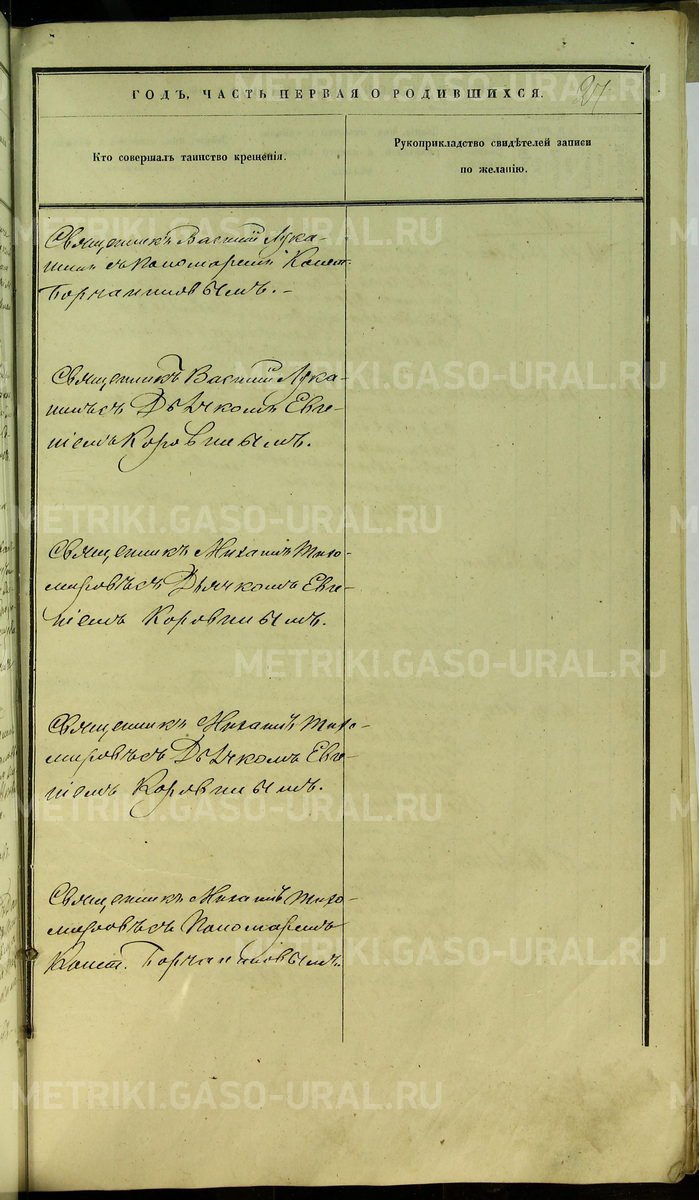 ГОДЪ, ЧАСТЬ ПЕРВАЯ О РОДИВШИХСЯ.
Кто совершалъ таинство крещенія.
Рукоприкладство свидѣтелей записи
по желанію.
Священникъ Василій Лука-
нинъ съ Пономаремъ Конст.
Борчаниновымъ. –
Священникъ Василій Лука-
нинъ съ Дьячкомъ Евге-
ніемъ Коровинымъ.
Священникъ Михаилъ Тихо-
мировъ съ Дьячкомъ Евге-
ніемъ Коровинымъ.
Священникъ Михаилъ Тихо-
мировъ съ Дьячкомъ Евге-
ніемъ Коровинымъ.
Священникъ Михаилъ Тихо-
мировъ съ Пономаремъ
Конст. Борчаниновымъ.
METRIKI.GASO-URAL.RU